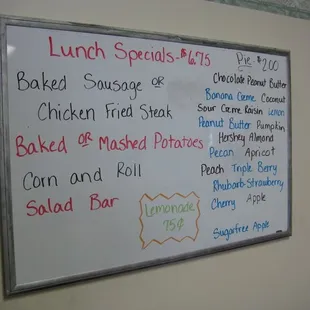 Lunch Specials - $6.75
Baked Sausage OR
Chicken Fried Steak
Baked OR Mashed Potatoes
Corn and Roll
Salad Bar
Lemonade
75¢
Pie - $2.00
Chocolate Peanut Butter
Banana Creme, Coconut
Sour Creme Raisin Lemon
Peanut Butter Pumpkin
Hershey Almond
Pecan Apricot
Peach Triple Berry
Rhubarb-Strawberry
Cherry Apple
Sugarfree Apple